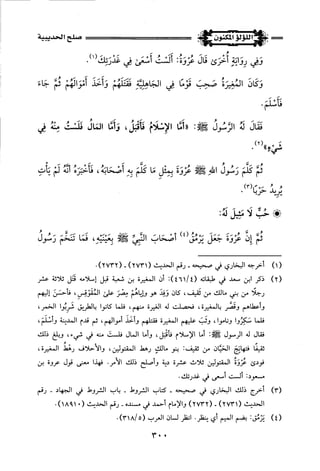 صلح الحديبية
اللؤلؤ المكنون
وَفِي رِوَايَةٍ أُخْرَى قَالَ عُرْوَةُ: أَلَسْتُ أَسْعَى فِي غَدْرَتِكَ(١).
وَكَانَ الْمُغِيرَةُ صَحِبَ قَوْمًا فِي الْجَاهِلِيَّةِ فَقَتَلَهُمْ وَأَخَذَ أَمْوَالَهُمْ ثُمَّ جَاءَ
فَأَسْلَمَ.
فَقَالَ لَهُ الرَّسُولُ ﷺ: «أَمَّا الْإِسْلَامُ فَأَقْبَلُ، وَأَمَّا الْمَالُ فَلَسْتُ مِنْهُ فِي
شَيْءٍ»(٢).
ثُمَّ كَلَّمَ رَسُولُ اللهِ ﷺ عُرْوَةَ بِمِثْلِ مَا كَلَّمَ بِهِ أَصْحَابَهُ، فَأَخْبَرَهُ أَنَّهُ لَمْ يَأْتِ
يُرِيدُ حَرْبًا(٣).
حُبٌّ لَا مَثِيلَ لَهُ:
ثُمَّ إِنَّ عُرْوَةَ جَعَلَ يَرْمُقُ(٤) أَصْحَابَ النَّبِيِّ ﷺ بِعَيْنَيْهِ، فَمَا تَنَخَّمَ رَسُولُ
(١) أخرجه البخاري في صحيحه ـ رقم الحديث (٢٧٣١) ـ (٢٧٣٢).
(٢) ذكر ابن سعد في طبقاته (٤٦١/٤): أن المغيرة بن شعبة قبل إسلامه قَتَل ثلاثة عشر
رجلًا من بني مالك من ثقيف، كان وَفَدَ هو وإياهُم مِصْرَ على المُقَوقِس، فأحسَنَ إليهم
وأعطاهم وقَصَّر بالمغيرة، فحصلت له الغيرة منهم، فلما كانوا بالطريق شَرِبُوا الخمر،
فلما سَكِرُوا وناموا، وثَبَ عليهم المغيرة فقتلهم وأخذ أموالهم، ثم قدم المدينة وأسْلَمَ،
فقال له الرسول ﷺ: أما الإسلام فأقْبَلُ، وأما المال فلست منه في شيء، وبلغ ذلك
ثقيفًا فتهايَجَ الحَيَّان من ثقيف: بنو مالكٍ رهط المقتولين، والأحلاف رهطُ المغيرة،
فودى عُرْوَةُ المقتولين ثلاث عشرة دية وأصلح ذلك الأمر. فهذا معنى قول عروة بن
مسعود: ألست أسعى في غدرتك.
(٣) أخرج ذلك البخاري في صحيحه ـ كتاب الشروط ـ باب الشروط في الجهاد ـ رقم
الحديث (٢٧٣١) ـ (٢٧٣٢) والإمام أحمد في مسنده ـ رقم الحديث (١٨٩١٠).
(٤) يَرْمُقُ: بضم الميم أي ينظر. انظر لسان العرب (٣١٨/٥).
٣٠٠